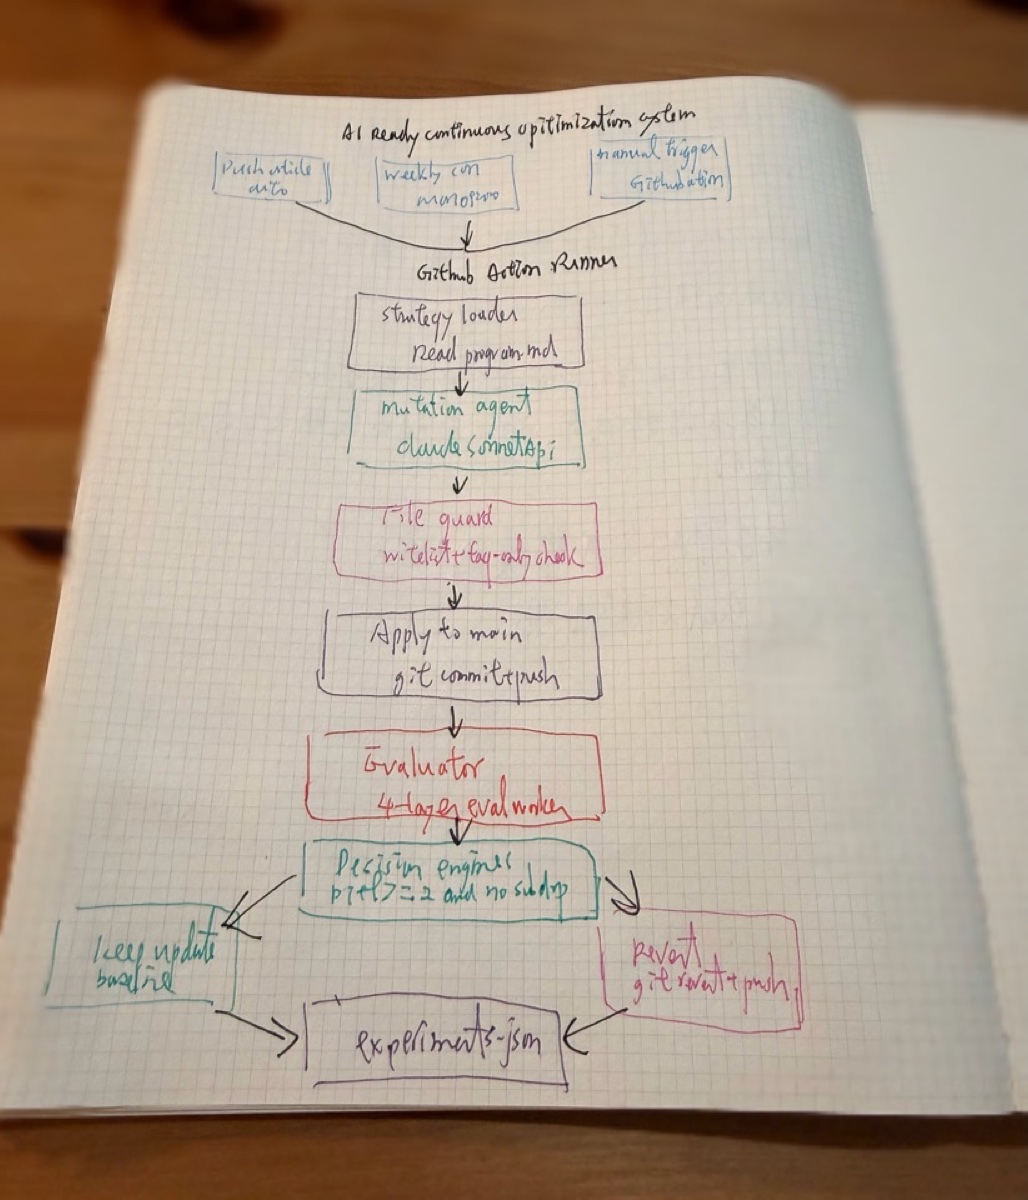 AI Ready continuous opitimization system
Push
weekly
manual trigger
Github
Github Action Runner
strategy loader
Read program.md
mutation agent
claude sonnet Api
File guard
witelist+tag-only check
Apply to main
git commit+push
Evaluator
4-layer eval worker
Decision engines
>=2 and no sub drop
keep update
baseline
Revert
git revert+push
experiments-json